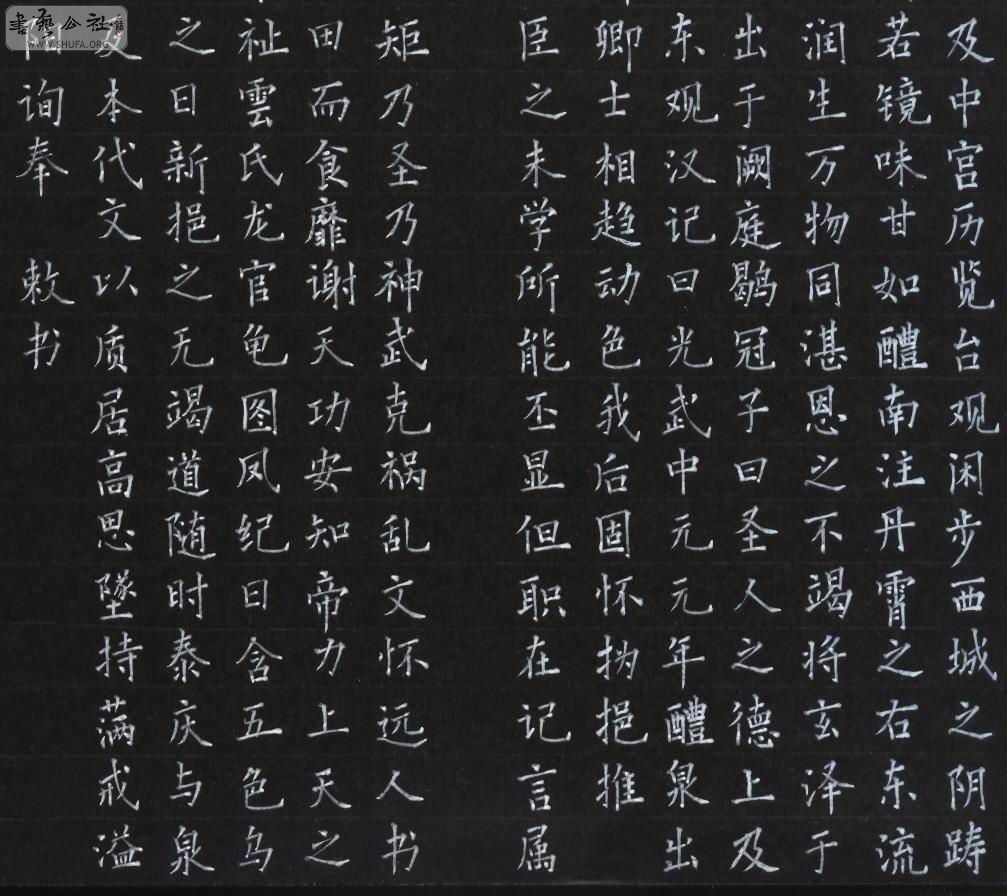 及中宫历览台观闲步西城之阴踌
若镜味甘如醴南注丹霄之右东流
润生万物同湛恩之不竭将玄泽于
出于阙庭鹖冠子曰圣人之德上及
东观汉记曰光武中元元年醴泉出
卿士相趋动色我后固怀㧑挹推
臣之末学所能丕显但职在记言属
矩乃圣乃神武克祸乱文怀远人书
田而食靡谢天功安知帝力上天之
祉雲氏龙官龟图凤纪日含五色乌
之日新挹之无竭道随时泰庆与泉
反本代文以质居高思墜持满戒溢
阳询奉 敕书
書藝公社
WWW.SHUFA.ORG